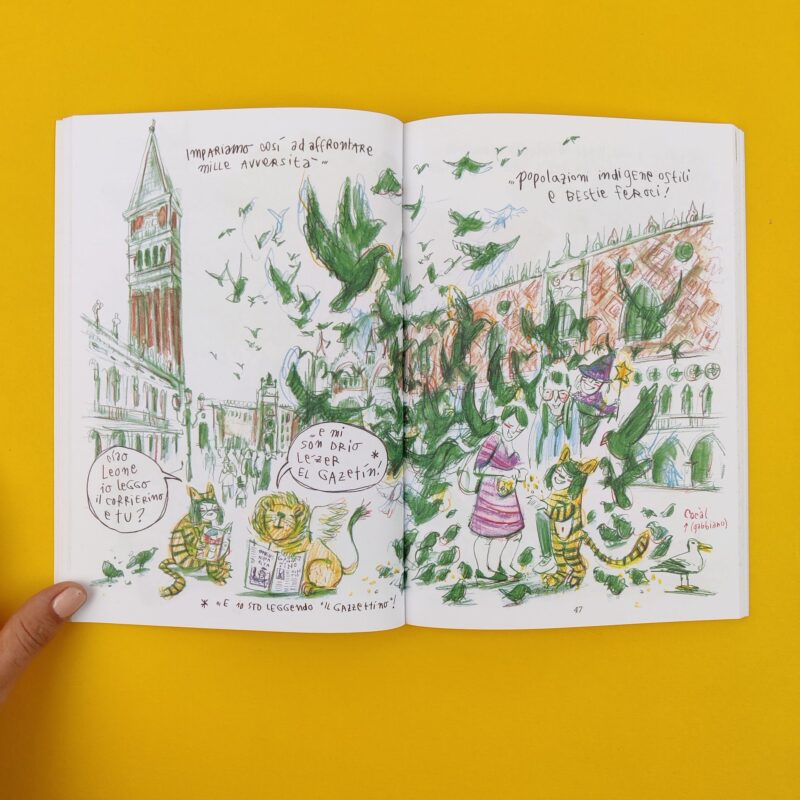 IMPARIAMO COSÍ ad AFFRONTARE
MILLE AVVERSITÀ..
..POPOLAZIONI INDIGENE OSTILI
E BESTIE FEROCI!
CIAO
LEONE
IO LEGGO
IL CORRIERINO
E TU?
..E MI
SON DRIO
LEZER *
EL GAZETÍN!
COCÀL
↑ (gabbiano)
* "E IO STO LEGGENDO "IL GAZZETTINO"!
47